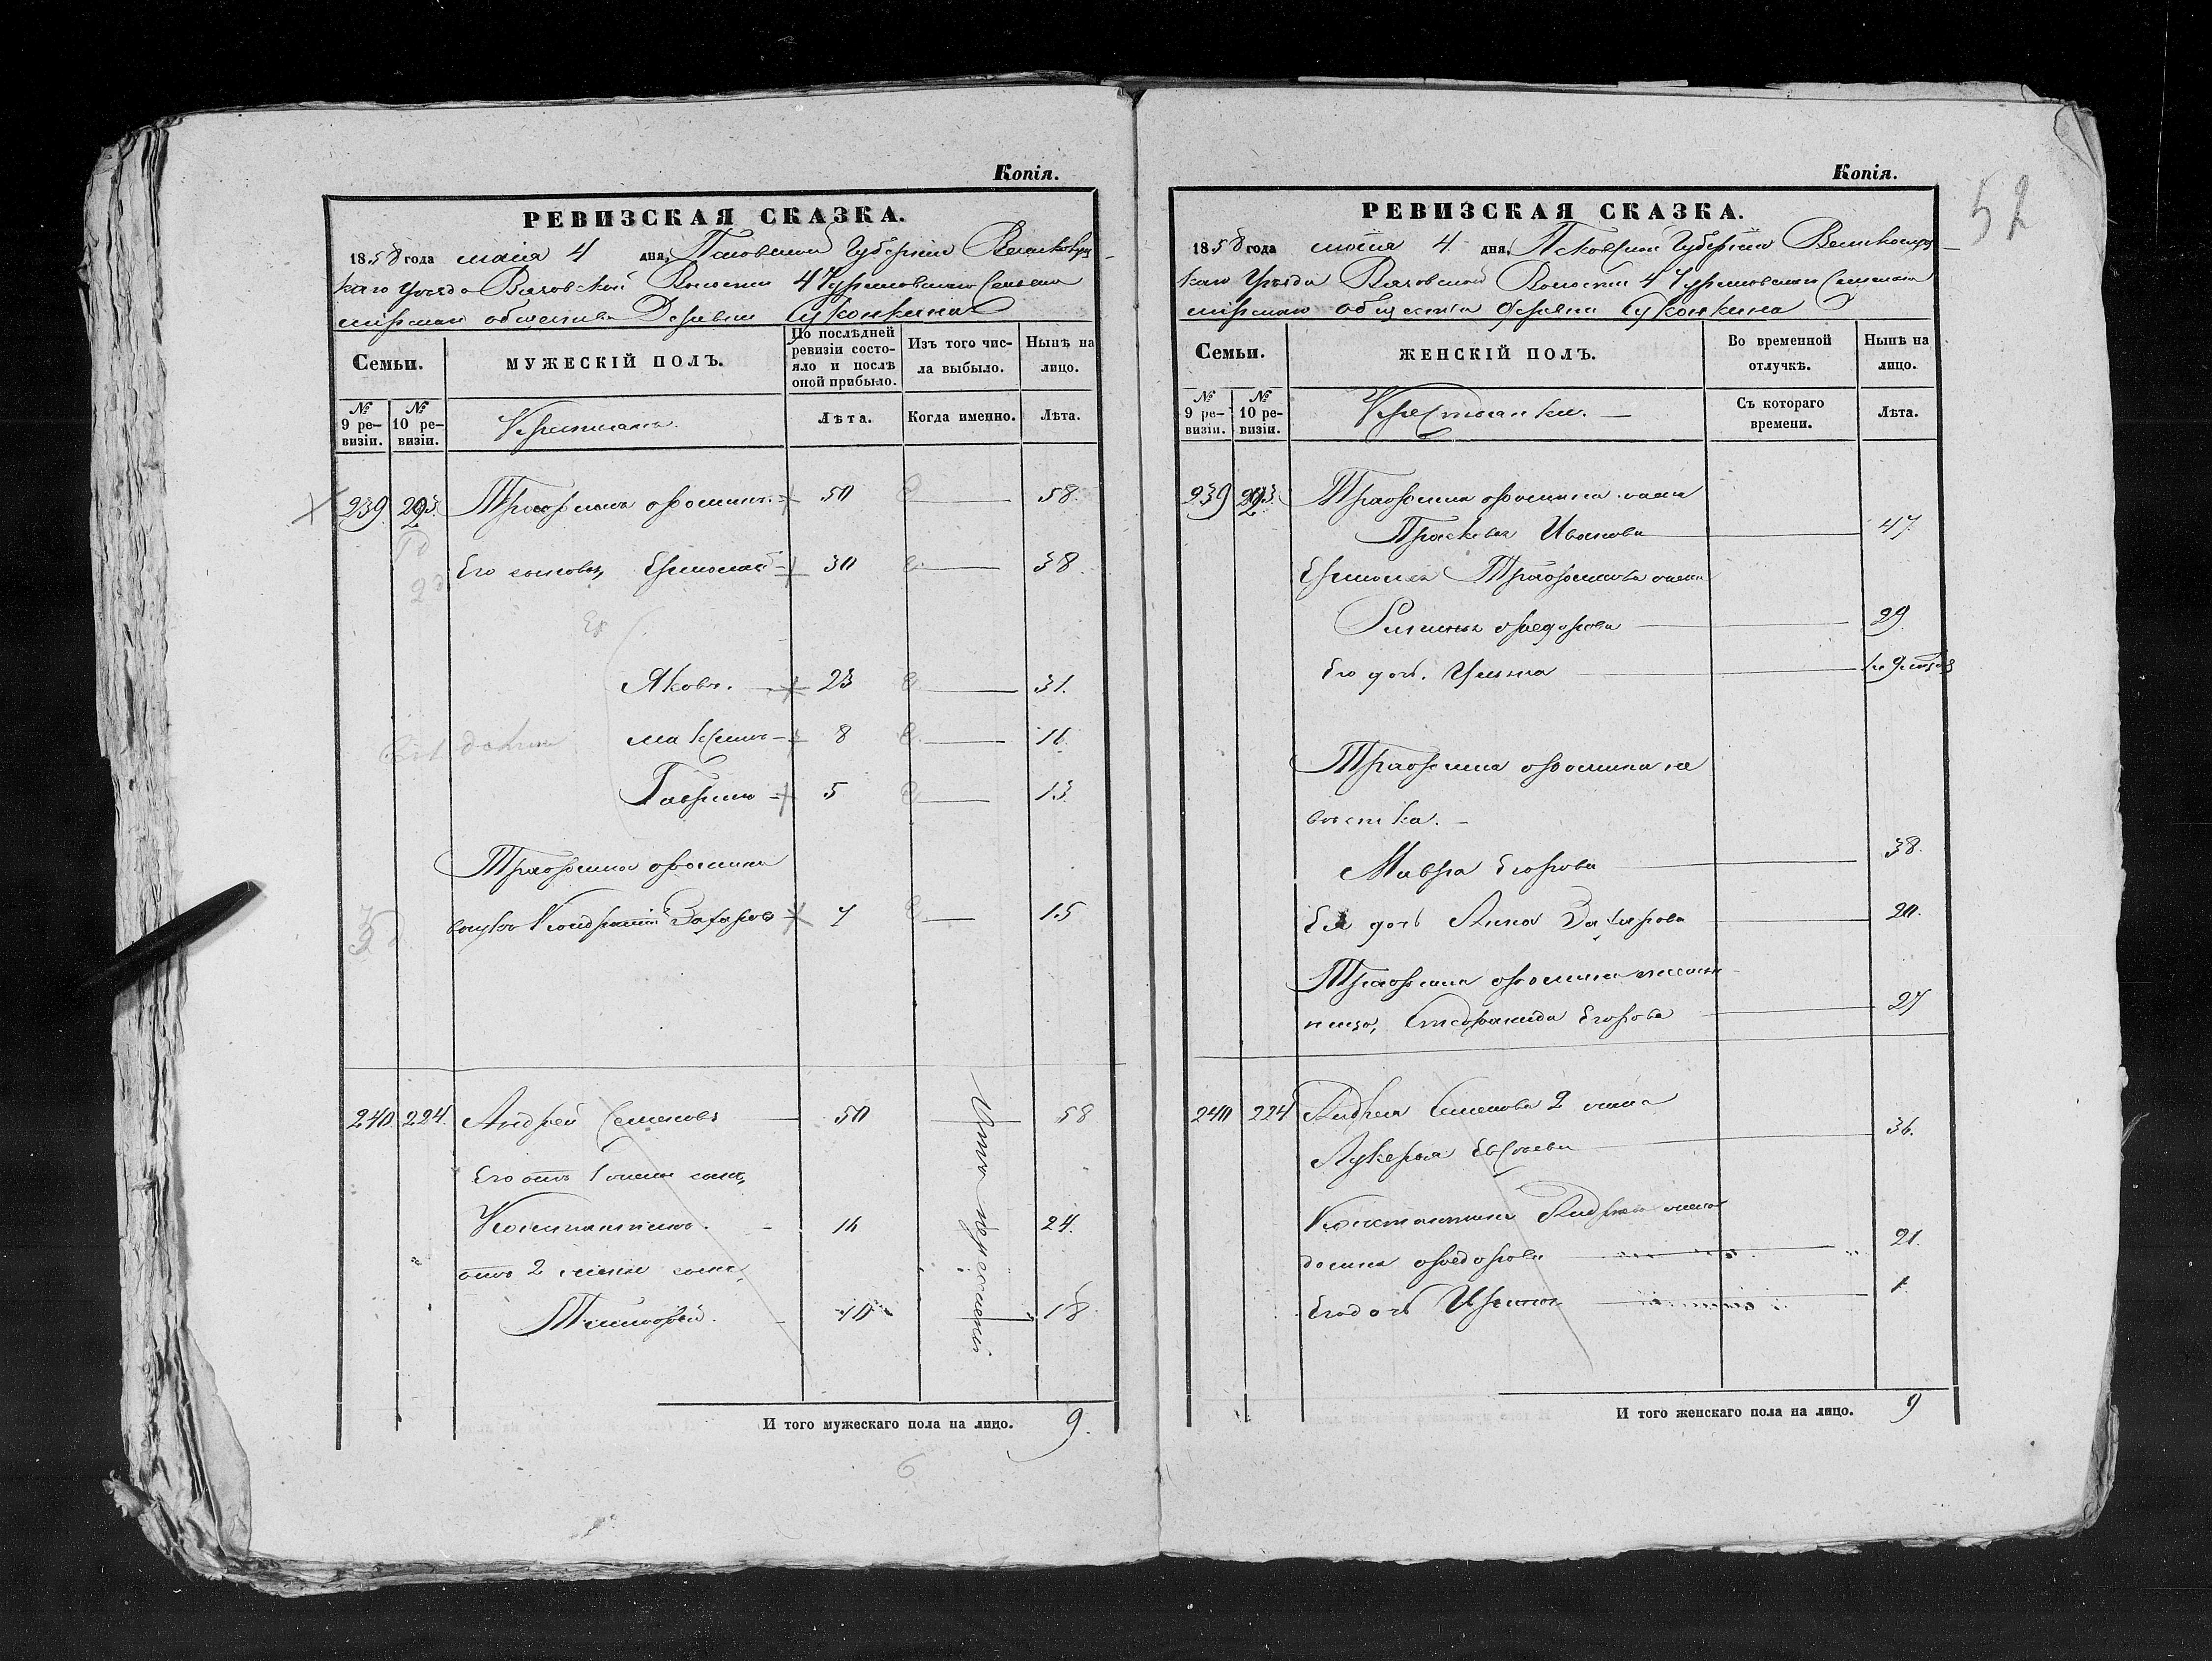 Копія.
РЕВИЗСКАЯ СКАЗКА.
1858 года маія 4 дня, Псковской Губерніи Великолуц-
каго Уезда Вязовской Волости 4 сельска
мірскаго общества Деревни Суконкина
Семьи.
МУЖЕСКІЙ ПОЛЪ.
По послѣдней ревизіи состо-яло и послѣ оной прибыло.
Изъ того чис-ла выбыло.
Нынѣ на лицо.
№ 9 ре-визіи.
№ 10 ре-визіи.
Крестьяне.
Лѣта.
Когда именно.
Лѣта.
239 223 Трофимъ Фоминъ 50 58.
Его сыновья, Ермолай 30 38.
Яковъ. 23 31.
Максимъ 8 16.
Гаврило 5 13.
Трофима Фомина
внукъ Кондратій Захаровъ 7 15
240. 224. Андрей Семеновъ 50 58
Его отъ 1 жены сынъ,
Константинъ. 16 24.
отъ 2 жены сынъ,
Тимофей. 10 18.
И того мужескаго пола на лицо. 9.
6
Копія.
52
РЕВИЗСКАЯ СКАЗКА.
1858 года маія 4 дня, Псковской Губерніи Великолуц-
каго Уезда Вязовской Волости 4 сельскаго
мірскаго общества деревни Суконкина
Семьи.
ЖЕНСКІЙ ПОЛЪ.
Во временной отлучкѣ.
Нынѣ на лицо.
№ 9 ре-визіи.
№ 10 ре-визіи.
Крестьянки.
Съ котораго времени.
Лѣта.
239 223 Трофима Фомина жена
Прасковья Иванова 47.
Ермолая Трофимова жена
Федорова 29.
Его дочь.
Трофима Фомина не
вѣстка.
Мавра Егорова 38.
Ея дочь Анна Захарова 20.
Трофима Фомина
Степанида Егорова 27
240 224 Андрея Семенова 2 жена
Лукерья Евсѣева 36.
Константина Андреева жена
Домна Федорова 21.
Его дочь Ирина 1.
И того женскаго пола на лицо. 9